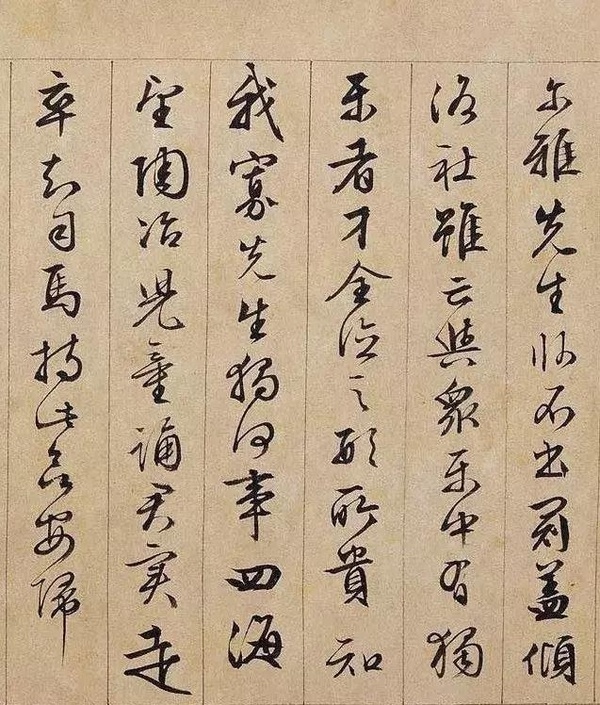 尔雅先生卧不出冠蓋傾
洛社雖云與衆乐中有獨
乐者才全德不形所貴知
我寡先生獨何事四海
望陶冶兒童誦君实走
卒知司馬持此欲安歸